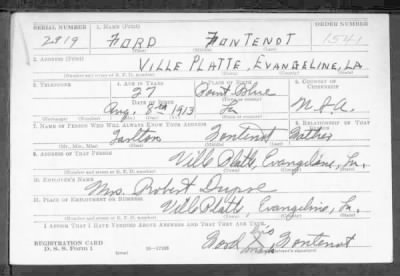 SERIAL NUMBER 1. NAME (Print) ORDER NUMBER
2819 FORD FONTENOT 1541
(First) (Middle) (Last)
2. ADDRESS (Print)
VILLE PLATTE, EVANGELINE, LA
(Number and street or R. F. D. number) (Town) (County) (State)
3. TELEPHONE 4. AGE IN YEARS 5. PLACE OF BIRTH 6. COUNTRY OF CITIZENSHIP
27 Point Blue
DATE OF BIRTH
Aug. 9th, 1913 La U.S.A.
7. NAME OF PERSON WHO WILL ALWAYS KNOW YOUR ADDRESS 8. RELATIONSHIP OF THAT PERSON
Fontenot Father
(Mr., Mrs., Miss) (First) (Middle) (Last)
9. ADDRESS OF THAT PERSON
Ville Platte, Evangeline, La.
(Number and street or R. F. D. number) (Town) (County) (State)
10. EMPLOYER'S NAME
Mrs. Robert Dupre
11. PLACE OF EMPLOYMENT OR BUSINESS
Ville Platte, Evangeline, La.
(Number and street or R. F. D. number) (Town) (County) (State)
I AFFIRM THAT I HAVE VERIFIED ABOVE ANSWERS AND THAT THEY ARE TRUE.
his
Ford X Fontenot
mark
REGISTRATION CARD
D. S. S. Form 1
(over)